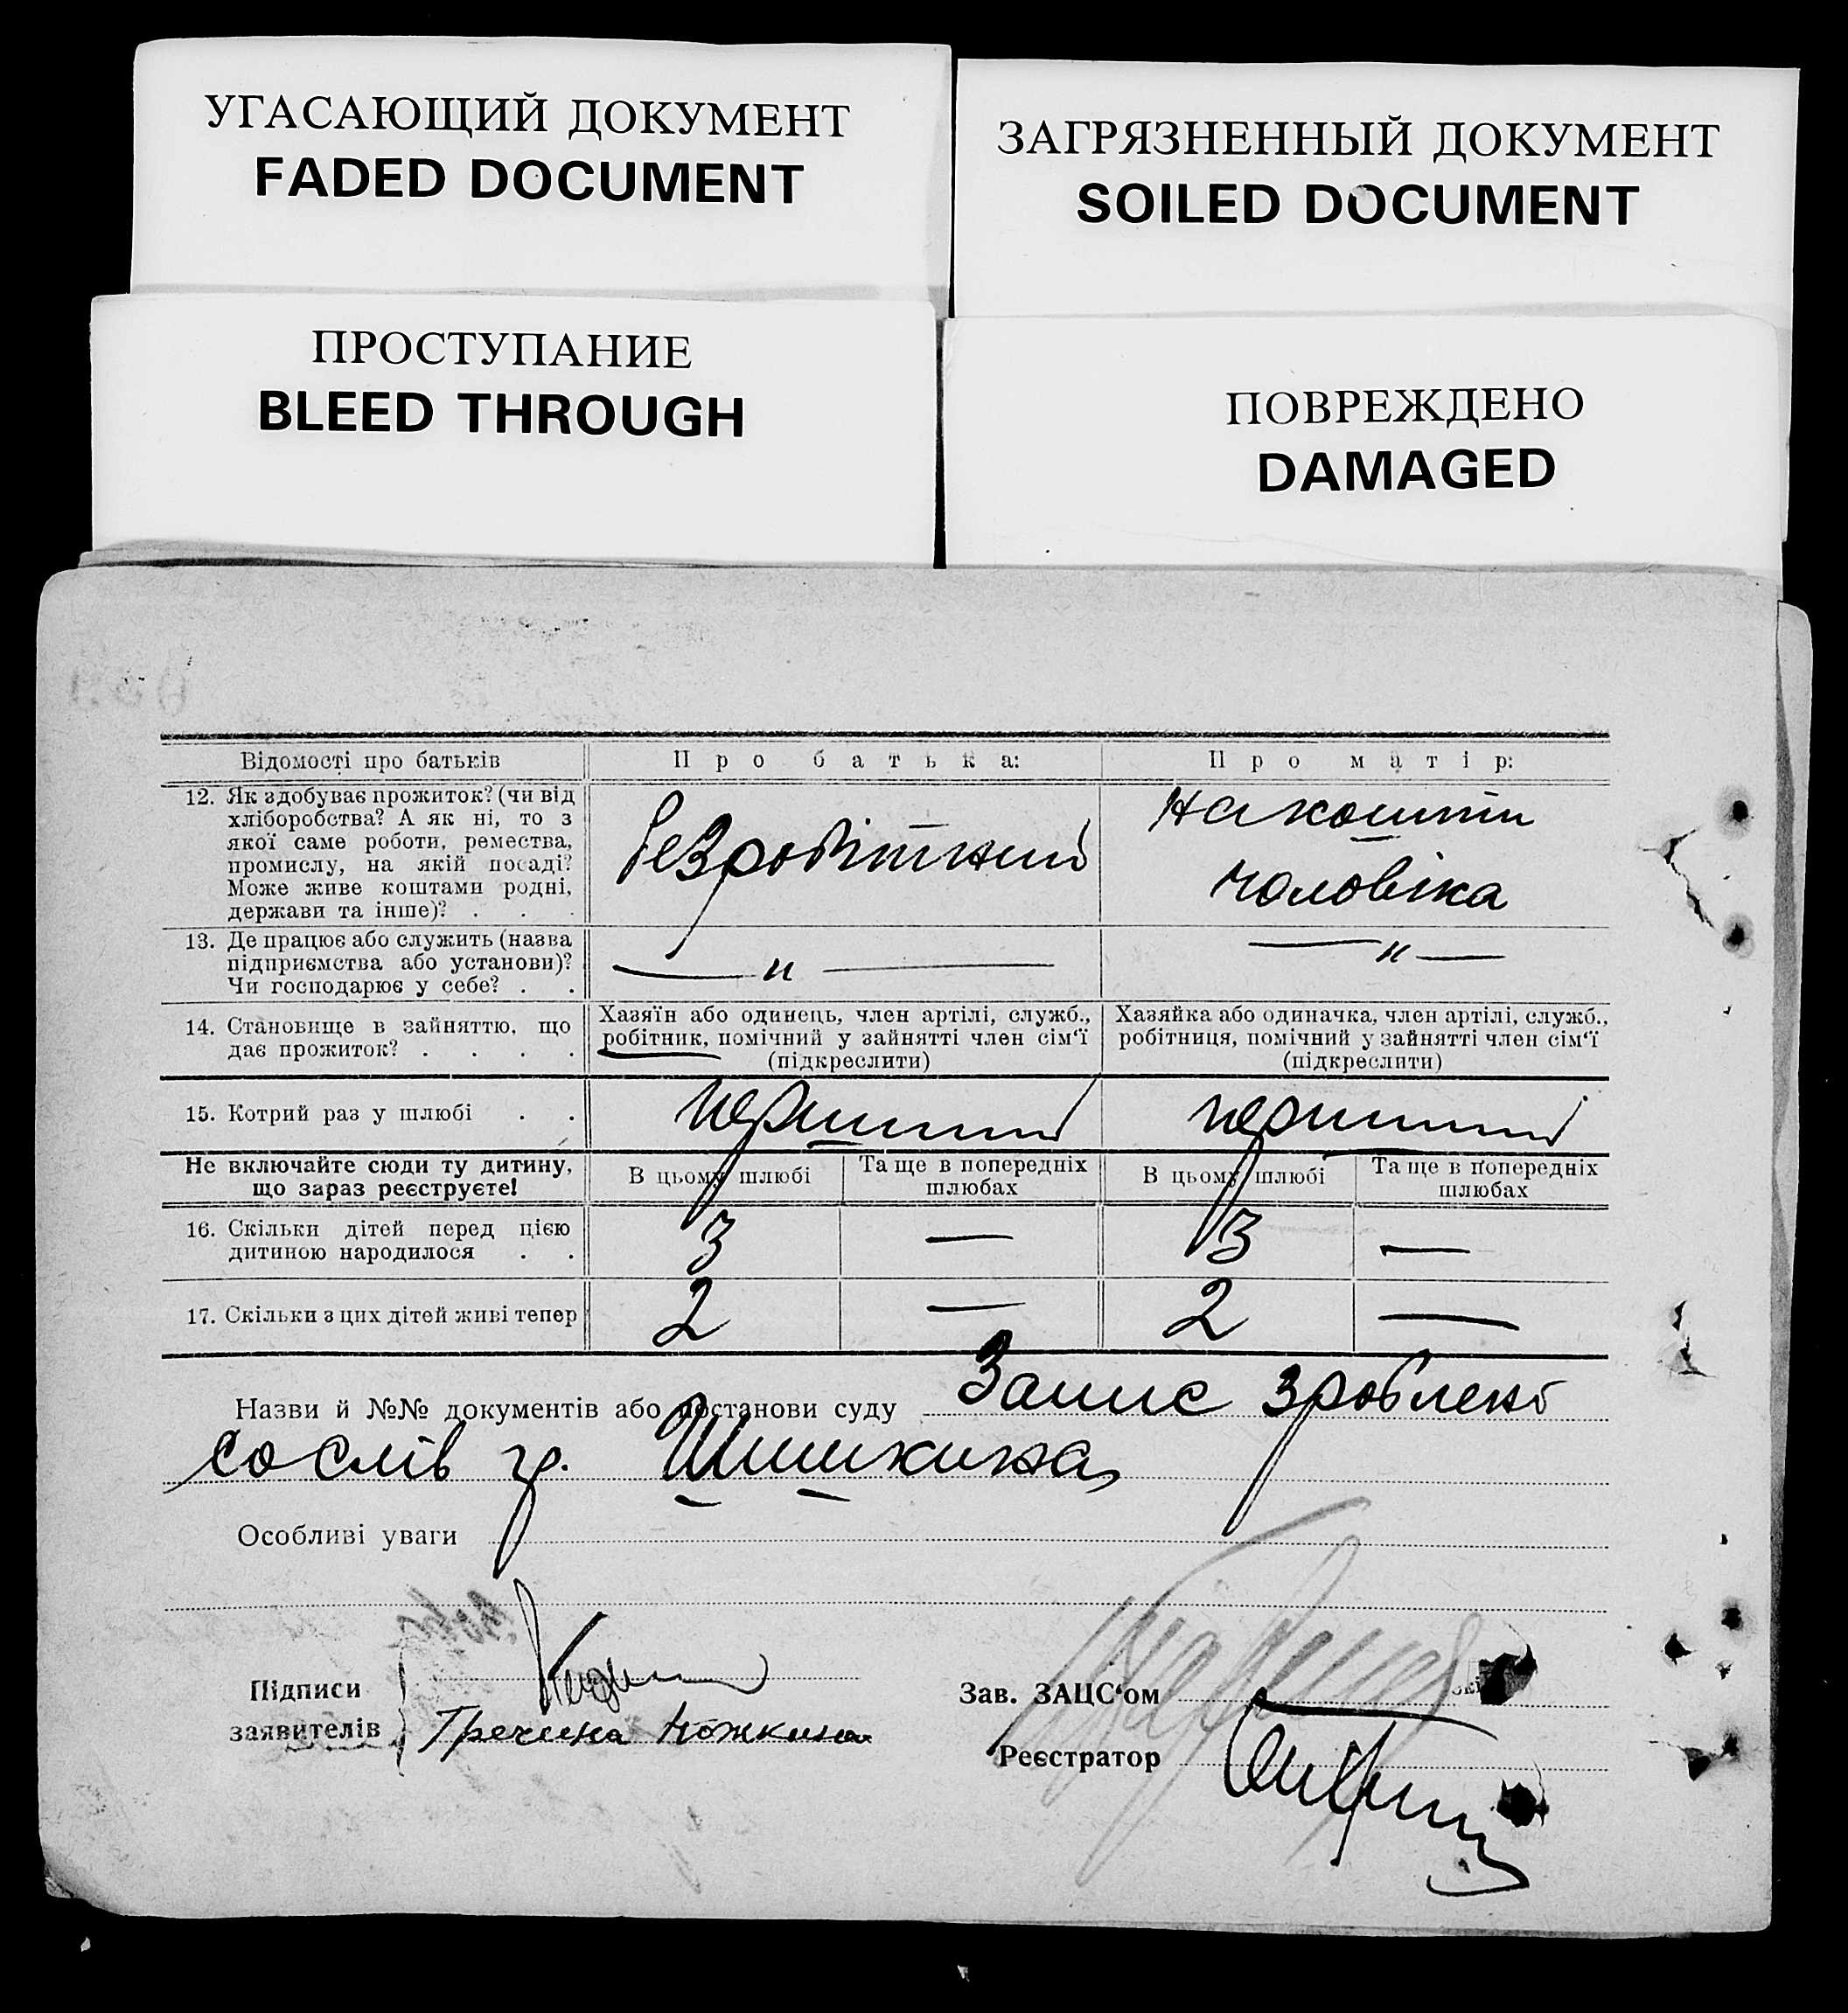 УГАСАЮЩИЙ ДОКУМЕНТ
FADED DOCUMENT
ЗАГРЯЗНЕННЫЙ ДОКУМЕНТ
SOILED DOCUMENT
ПРОСТУПАНИЕ
BLEED THROUGH
ПОВРЕЖДЕНО
DAMAGED
Відомості про батьків
Про батька:
Про матір:
12. Як здобуває прожиток? (чи від
хліборобства? А як ні, то з
якої саме роботи, ремества,
промислу, на якій посаді?
Може живе коштами родні,
держави та інше)? . . .
безробітний
на кошти
чоловіка
13. Де працює або служить (назва
підприємства або установи)?
Чи господарює у себе? . .
— „ —
— „ —
14. Становище в зайняттю, що
дає прожиток? . . . .
Хазяїн або одинець, член артілі, служб.,
робітник, помічний у зайнятті член сім‘ї
(підкреслити)
Хазяйка або одиначка, член артілі, служб.,
робітниця, помічний у зайнятті член сім‘ї
(підкреслити)
15. Котрий раз у шлюбі . .
перший
перший
Не включайте сюди ту дитину,
що зараз реєструєте!
В цьому шлюбі
Та ще в попередніх
шлюбах
В цьому шлюбі
Та ще в попередніх
шлюбах
16. Скільки дітей перед цією
дитиною народилося . .
3
—
3
—
17. Скільки з цих дітей живі тепер
2
—
2
—
Назви й №№ документів або постанови суду Запис зроблено
со слів гр. Шишкина
Особливі уваги
Підписи
заявителів
Гречина Ножкина
Зав. ЗАЦС‘ом
Реєстратор